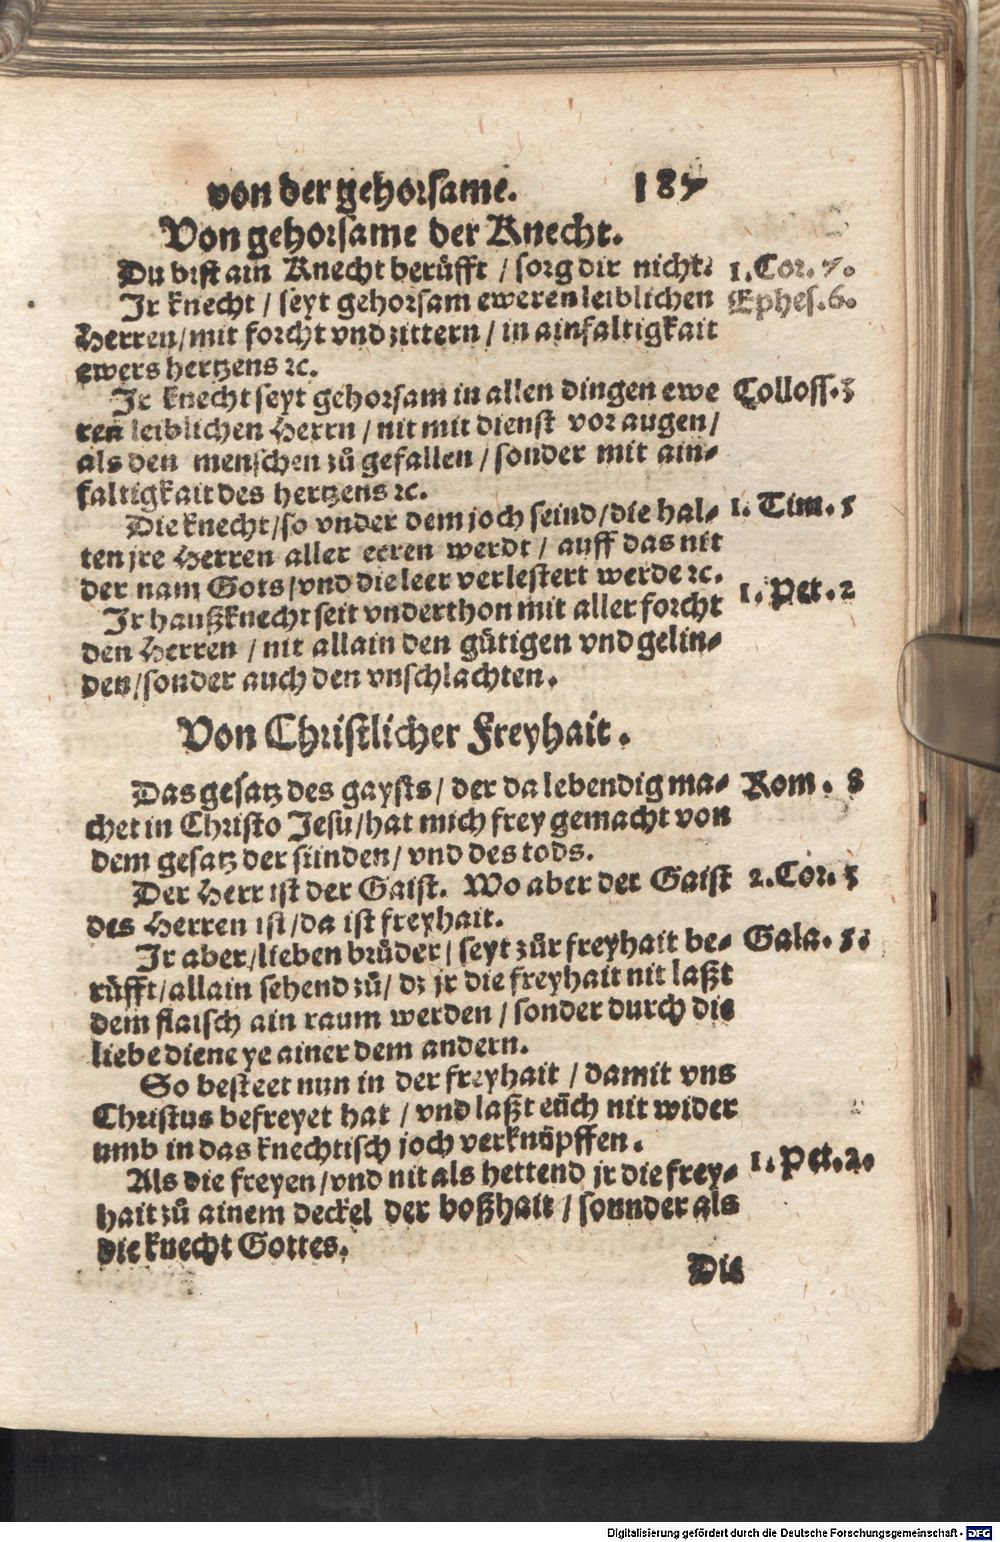 von der gehorsame. 187
Von gehorsame der Knecht.
Du bist ain Knecht berüfft / sorg dir nicht. 1. Cor. 7.
Ir knecht / seyt gehorsam eweren leiblichen Ephes. 6.
Herren / mit forcht vnd zittern / in ainfaltigkait
ewers hertzens ꝛc.
Ir knecht seyt gehorsam in allen dingen ewe Colloss. 3
ren leiblichen Herrn / nit mit dienst vor augen /
als den menschen zů gefallen / sonder mit ain-
faltigkait des hertzens ꝛc.
Die knecht / so vnder dem joch seind / die hal- 1. Tim. 5
ten jre Herren aller eeren werdt / auff das nit
der nam Gots / vnd die leer verlestert werde ꝛc.
Ir haußknecht seit vnderthon mit aller forcht 1. Pet. 2
den Herren / nit allain den gütigen vnd gelin-
den / sonder auch den vnschlachten.
Von Christlicher Freyhait.
Das gesatz des gaysts / der da lebendig ma- Rom. 8
chet in Christo Jesu / hat mich frey gemacht von
dem gesatz der sünden / vnd des tods.
Der Herr ist der Gaist. Wo aber der Gaist 2. Cor. 3
des Herren ist / da ist freyhait.
Ir aber / lieben brüder / seyt zůr freyhait be- Gala. 5.
rüfft / allain sehend zů / dz jr die freyhait nit laßt
dem flaisch ain raum werden / sonder durch die
liebe diene ye ainer dem andern.
So besteet nun in der freyhait / damit vns
Christus befreyet hat / vnd laßt eüch nit wider
umb in das knechtisch joch verknüpffen.
Als die freyen / vnd nit als hettend jr die frey- 1. Pet. 2.
hait zů ainem deckel der boßhait / sounder als
die knecht Gottes.
Die
Digitalisierung gefördert durch die Deutsche Forschungsgemeinschaft - DFG